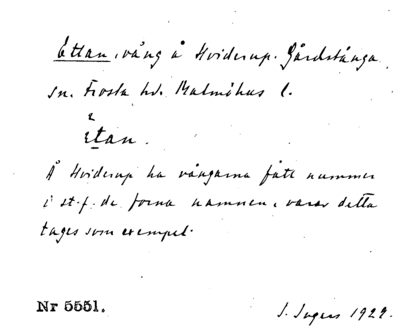 Ettan, vång å Hviderup. Gårdstånga
sn. Frosta hd. Malmöhus l.
etan.
Å Hviderup ha vångarna fått nummer
i st. f. de forna namnen, varav detta
tages som exempel.
Nr 5551.
J. Ingers 1922.